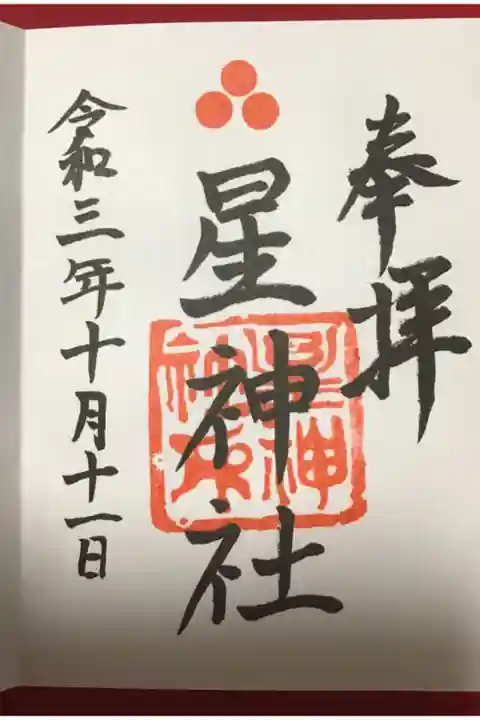 奉拝
星神社
令和三年十月十一日